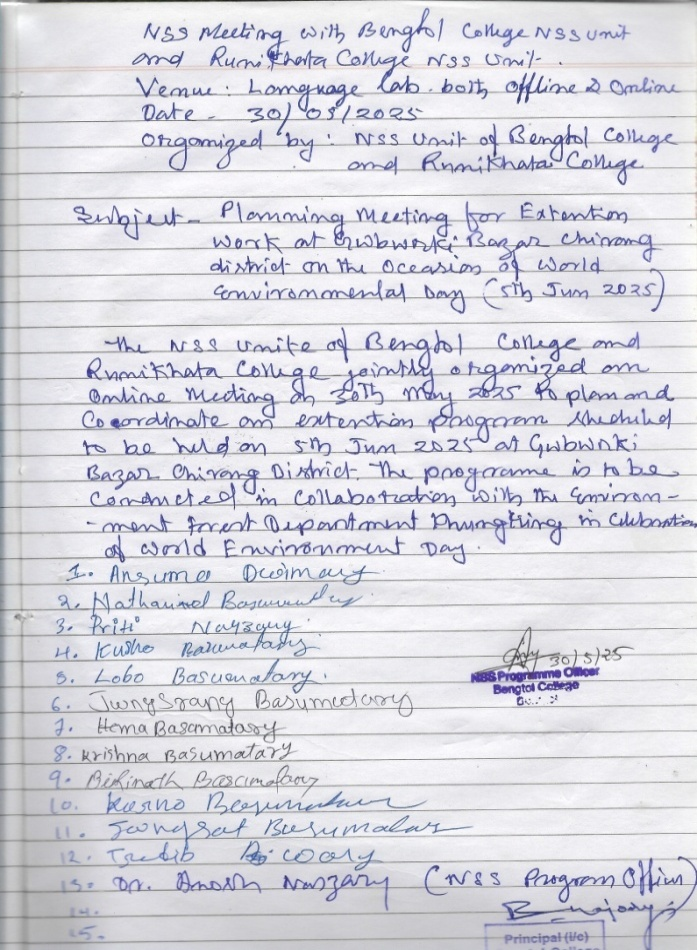 NSS Meeting with Bengtol College NSS unit
and Runikhata College NSS Unit.
Venue: Language lab. both offline & Online
Date - 30/05/2025
Organized by: NSS Unit of Bengtol College
and Runikhata College
Subject - Planning Meeting for Extention
work at Gwbwrki Bazar Chirang
district on the Occasion of World
Environmental Day (5th Jun 2025)
The NSS Unite of Bengtol College and
Runikhata College jointly organized an
Online Meeting on 30th May 2025 to plan and
Cocordinate an extention program sheduled
to be held on 5th Jun 2025 at Gwbwrki
Bazar Chirang District. The programe is to be
Conducted in Collaboration with the Environ-
-ment forest Department in Celebration
of World Environment Day.
1. Ansuma Dwimary
2. Nathanael Basumatary
3. Priti Narzary
4. Basumatary
5. Lobo Basumatary.
6. Jwngsrang Basumatary
7. Hema Basumatary
8. Krishna Basumatary
9. Basumatary
10. Basumatary
11. Basumatary
12.
13. Dr. Narzary (NSS Program Officer)
14.
15.
30/5/25
NSS Programme Officer
Bengtol College
Principal (i/c)